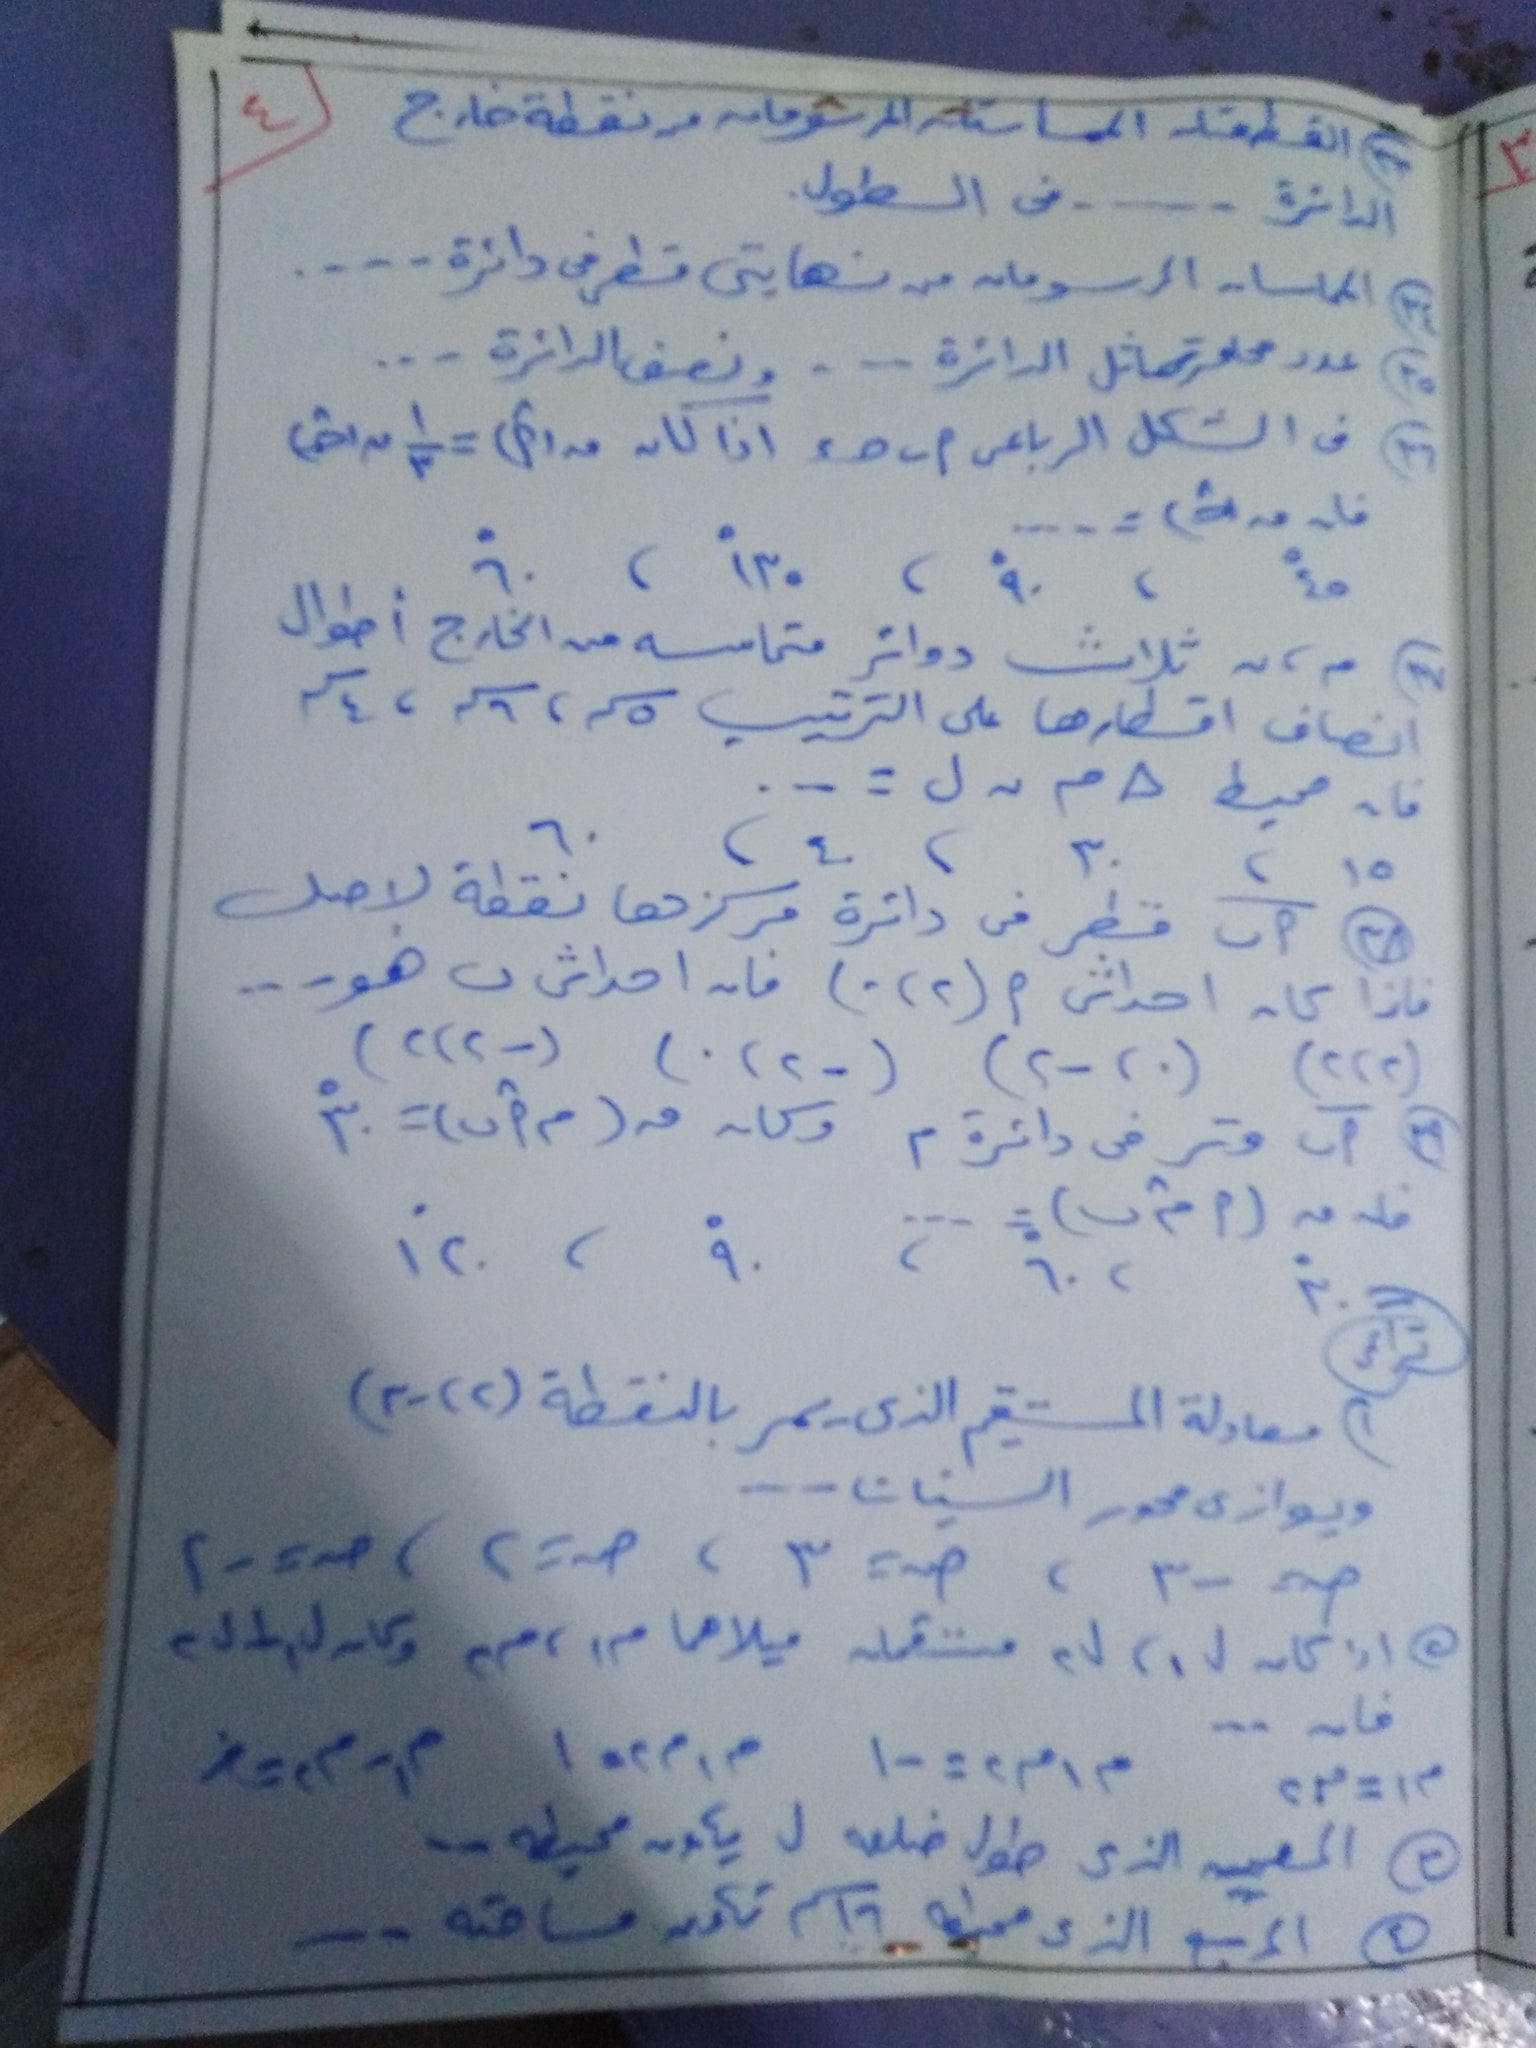 ٤
(٢٣) القطعتان المماستان المرسومتان من نقطة خارج
الدائرة ---- فى الطول.
(٢٤) المماسان المرسومان من نهايتى قطر فى دائرة ----
(٢٥) عدد محاور تماثل الدائرة --- ونصف الدائرة ---
(٢٦) فى الشكل الرباعى م ب ح ء اذا كان = ١/٣
فان = ----
٤٥° ، ٩٠° ، ١٣٥° ، ٦٠°
(٢٧) م ، ن ثلاث دوائر متماسه من الخارج أطوال
انصاف اقطارها على الترتيب ٥سم ، ٦سم ، ٤سم
فان محيط △ م ن ل = ---
١٥ ، ٣٠ ، ٤٠ ، ٦٠
(٢٨) م ب قطر فى دائرة مركزها نقطة لاصل
فاذا كان احداثى م (٢ ، ٠) فان احداثى ب هو ---
(٢ ، ٢) (٠ ، -٢) (-٢ ، ٠) (-٢ ، ٢)
(٢٩) م ب وتر فى دائرة م وكان ق (م م̂ ب) = ٣٠°
فان ق (م م̂ ب) = ---
٣٠° ، ٦٠° ، ٩٠° ، ١٢٠°
١) معادلة المستقيم الذى يمر بالنقطة (٢ ، -٣)
ويوازى محور السينات ---
ص = -٣ ، ص = ٣ ، ص = ٢ ، ص = -٢
(٢) اذا كان ل١ ، ل٢ مستقيمان ميلاهما م١ ، م٢ وكان ل١ ⊥ ل٢
فان ---
م١ = م٢ م١ م٢ = -١ م١ م٢ = ١ م١ - م٢ =
(٣) المعين الذى طول ضلعه ل يكون محيطه ---
(٤) المربع الذى محيطه ١٦سم تكون مساحته ---
٣